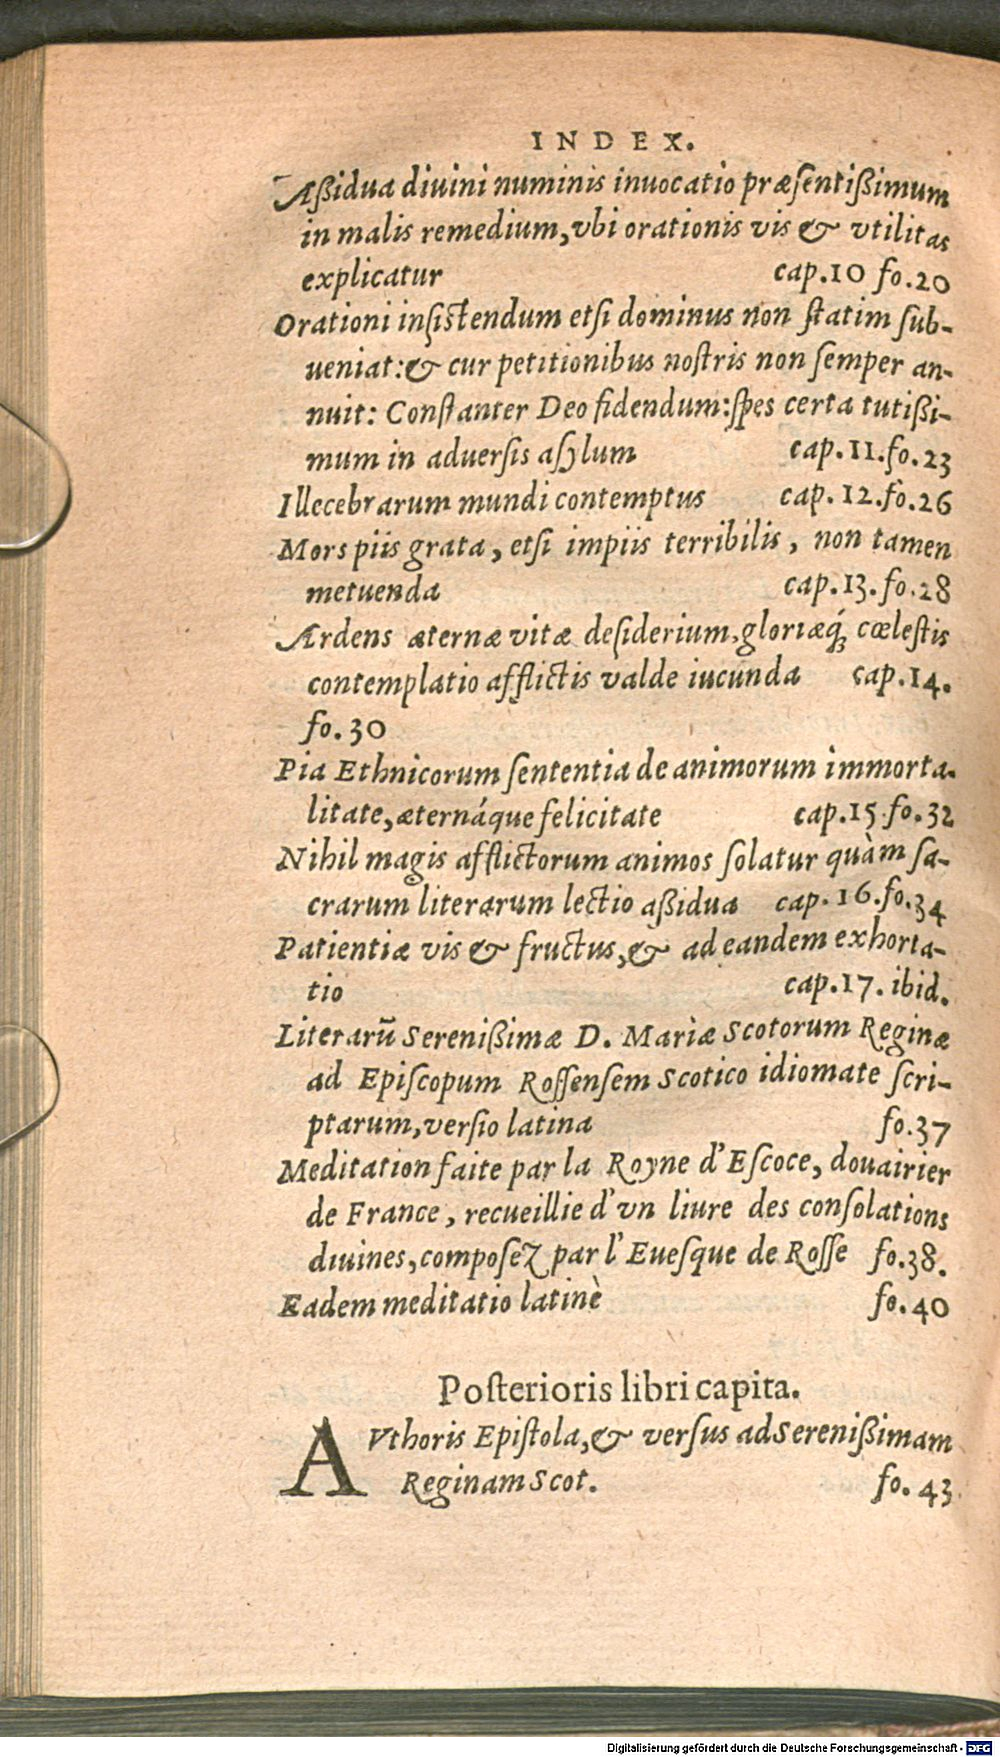 INDEX.
Aßidua diuini numinis inuocatio præſentißimum
in malis remedium, vbi orationis vis & vtilitas
explicatur cap.10 fo.20
Orationi inſiſtendum etſi dominus non ſtatim ſub-
ueniat: & cur petitionibus noſtris non ſemper an-
nuit: Conſtanter Deo fidendum: ſpes certa tutißi-
mum in aduerſis aſylum cap.11.fo.23
Illecebrarum mundi contemptus cap.12.fo.26
Mors piis grata, etſi impiis terribilis, non tamen
metuenda cap.13.fo.28
Ardens æternæ vitæ deſiderium, gloriæq́; cœleſtis
contemplatio afflictis valde iucunda cap.14.
fo.30
Pia Ethnicorum ſententia de animorum immorta-
litate, æternáque felicitate cap.15.fo.32
Nihil magis afflictorum animos ſolatur quàm ſa-
crarum literarum lectio aßidua cap.16.fo.34
Patientiæ vis & fructus, & ad eandem exhorta-
tio cap.17.ibid.
Literarū Sereniſſimæ D. Mariæ Scotorum Reginæ
ad Epiſcopum Roſſenſem Scotico idiomate ſcri-
ptarum, verſio latina fo.37
Meditation faite par la Royne d'Eſcoce, douairier
de France, recueillie d'vn liure des conſolations
diuines, compoſez par l'Eueſque de Roſſe fo.38.
Eadem meditatio latinè fo.40
Poſterioris libri capita.
AVthoris Epiſtola, & verſus ad Sereniſſimam
Reginam Scot. fo.43
Digitalisierung gefördert durch die Deutsche Forschungsgemeinschaft - DFG